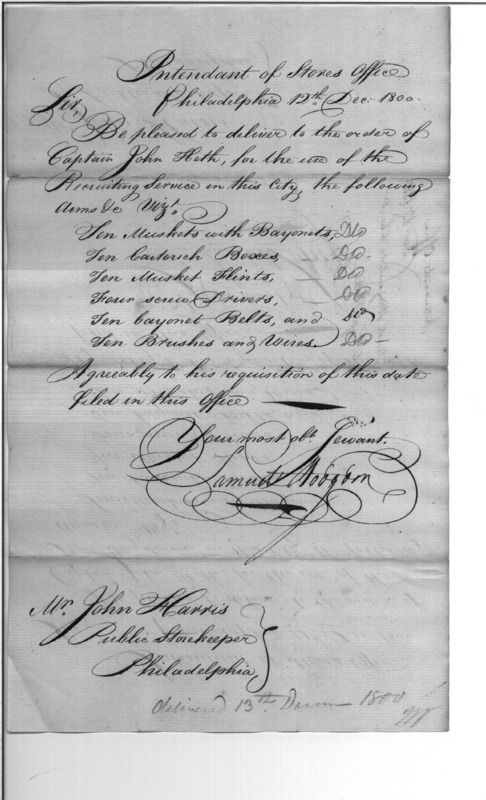 Intendant of Stores Office
Philadelphia 12th. Dec. 1800.
Sir,
Be pleased to deliver to the order of
Captain John Heth, for the use of the
Recruiting Service in this City, the following
Arms &c Vizt.
Ten Muskets with Bayonets,
Ten Cartouch Boxes,
Ten Musket Flints,
Four screw Drivers,
Ten bayonet Belts, and
Ten Brushes and Wires.
Agreeably to his requisition of this date
filed in this Office
Your most obt. Servant.
Samuel Hodgdon
Mr. John Harris
Public Storekeeper
Philadelphia,
delivered 13th 1800